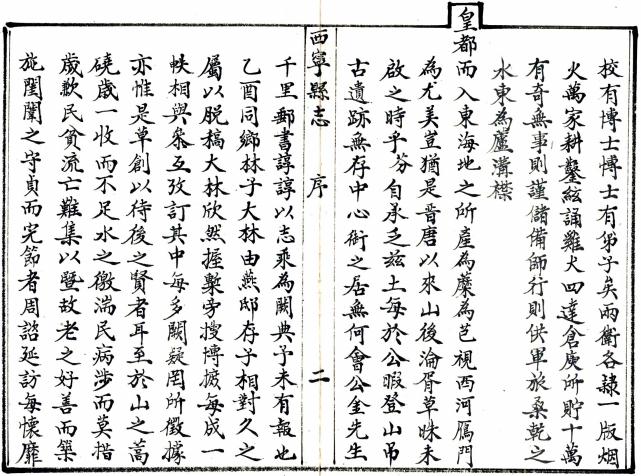 校有博士博士有弟子矣兩衛各隷一版烟
火萬家耕鑿絃誦雞犬四達倉庾所貯十萬
有奇無事則謹儲備師行則供軍旅桑乾之
水東為蘆溝襟
皇都而入東海地之所產為糜為芑視西河鴈門
為尤美豈猶是晋唐以來山後淪胥草昧未
啟之時乎芬自承乏兹土每於公暇登山吊
古遺跡無存中心衔之居無何會公金先生
西寧縣志 序 二
千里郵書諄諄以志乘為闕典予未有報也
乙酉同鄉林子大林由燕邸存予相對久之
屬以脱稿大林欣然握槧旁搜博摭每成一
帙相與叅互攷訂其中每多闕疑罔所徵據
亦惟是草創以待後之賢者耳至於山之蒿
磽歲一收而不足水之徼湍民病涉而莫楷
歲歉民貧流亡難集以暨故老之好善而築
施閨闈之守貞而完節者周諮延訪每懷靡